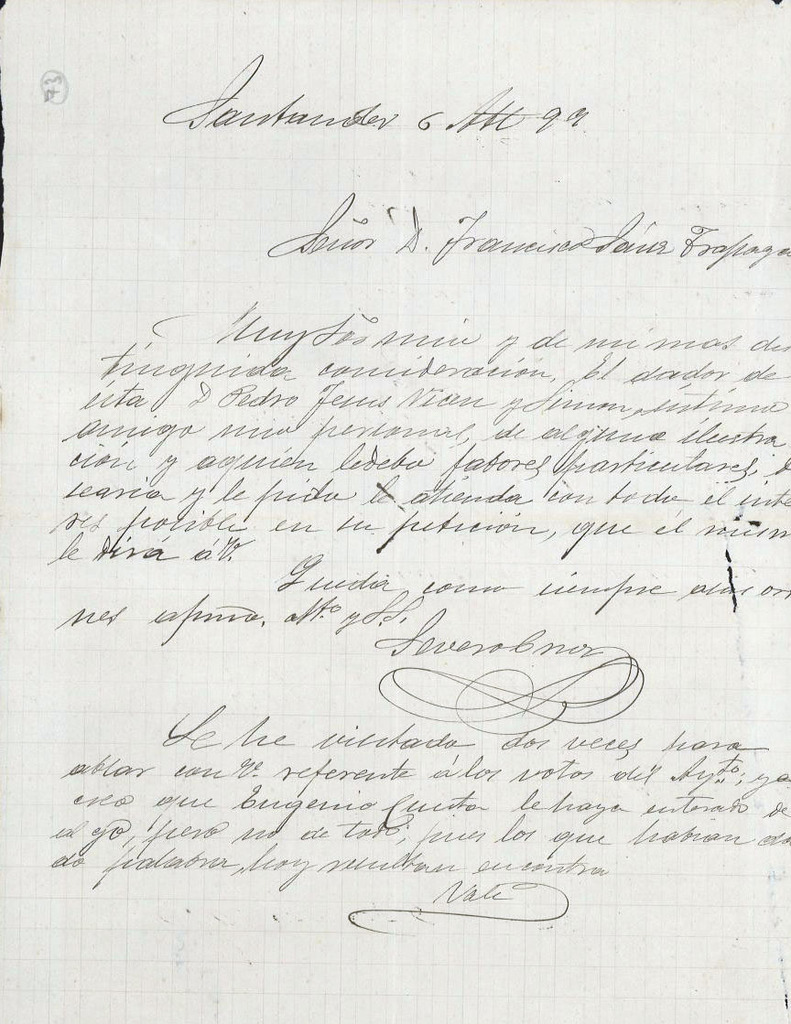 73
Santander 6 99
Señor D. Francisco Sáinz Trapaga
Muy Sor mio y de mi mas dis
tinguida consideración. El dador de
esta D Pedro Jesus y Simon, intimo
amigo mio personal, de alguna ilustra
ción y aquien ledebo fabores particulares, d
searia y le pido le atienda con todo el inte
res posible en su petición, que él mism
le dirá á V.
Queda como siempre asus or
nes afmo. Atto y S.S.
Severo
Le he visitado dos veces para
ablar con V. referente á los votos del Aymto, ya
creo que Eugenio Cuesta le haya enterado de
al go, pero no de todo, pues los que habian da
do palabra, hoy resultan en contra
Vale